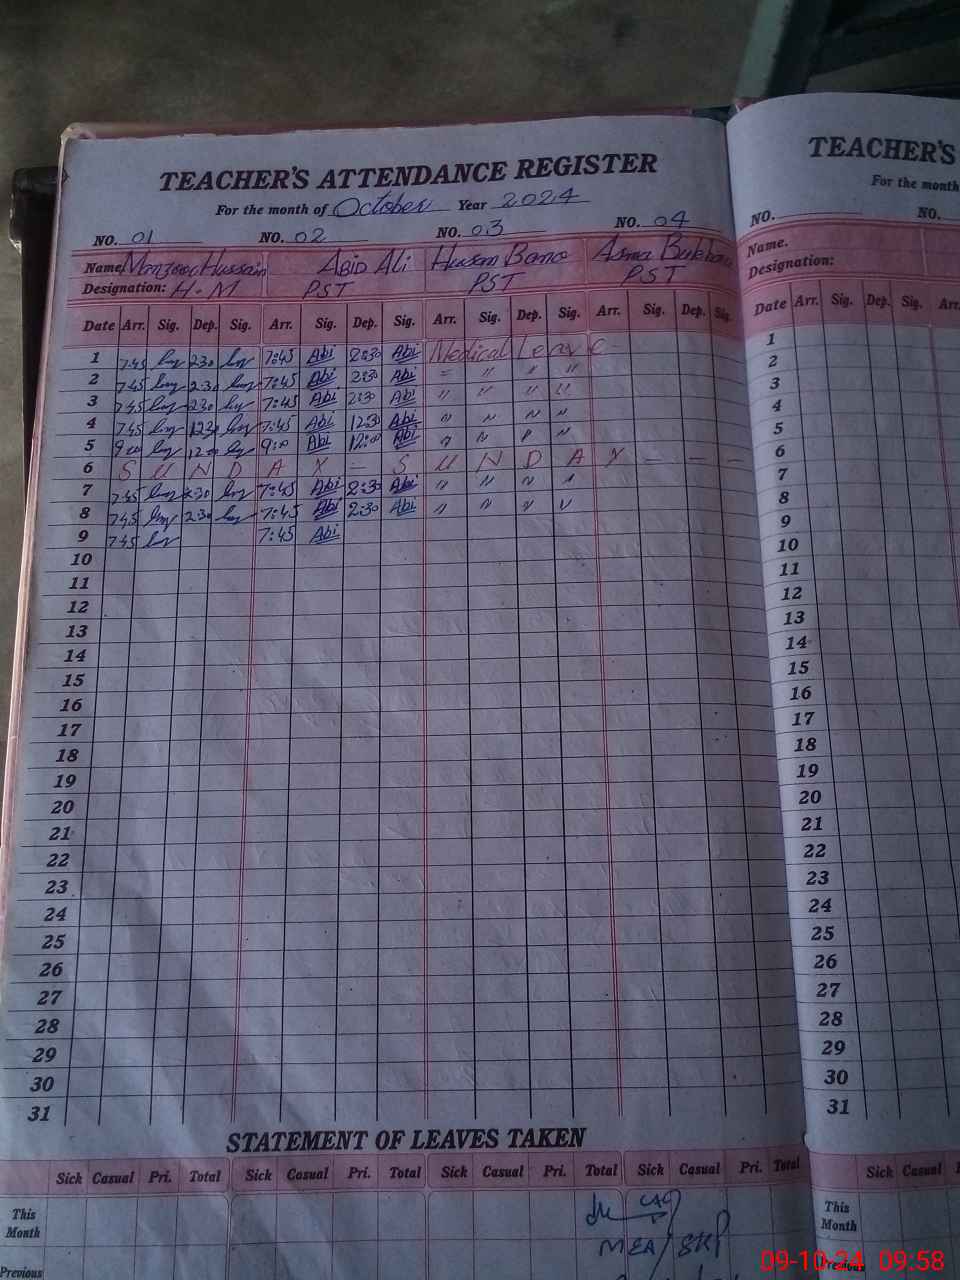 TEACHER'S ATTENDANCE REGISTER
For the month of October Year 2024
NO. 01 NO. 02 NO. 03 NO. 04
Name Manzoor Hussain Abid Ali Husan Bano Asma
Designation: H.M PST PST PST
Date Arr. Sig. Dep. Sig. Arr. Sig. Dep. Sig. Arr. Sig. Dep. Sig. Arr. Sig. Dep. Sig.
1 7:45 2:30 7:45 Abi 2:30 Abi Medical Leave
2 7:45 2:30 7:45 Abi 2:30 Abi = " " "
3 7:45 2:30 7:45 Abi 2:30 Abi " " " "
4 7:45 12:30 7:45 Abi 12:30 Abi " " " "
5 9:00 12:00 9:00 Abi 12:00 Abi " " " "
6 S U N D A Y - S U N D A Y - - -
7 7:45 2:30 7:45 Abi 2:30 Abi " " " "
8 7:45 2:30 7:45 Abi 2:30 Abi " " " "
9 7:45 7:45 Abi
10
11
12
13
14
15
16
17
18
19
20
21
22
23
24
25
26
27
28
29
30
31
STATEMENT OF LEAVES TAKEN
Sick Casual Pri. Total Sick Casual Pri. Total Sick Casual Pri. Total Sick Casual Pri. Total
This
Month
MEA/SKP
Previous
TEACHER'S
For the month
NO. NO.
Name.
Designation:
Date Arr. Sig. Dep. Sig. Arr.
1
2
3
4
5
6
7
8
9
10
11
12
13
14
15
16
17
18
19
20
21
22
23
24
25
26
27
28
29
30
31
Sick Casual
This
Month
Previous
09-10-24 09:58